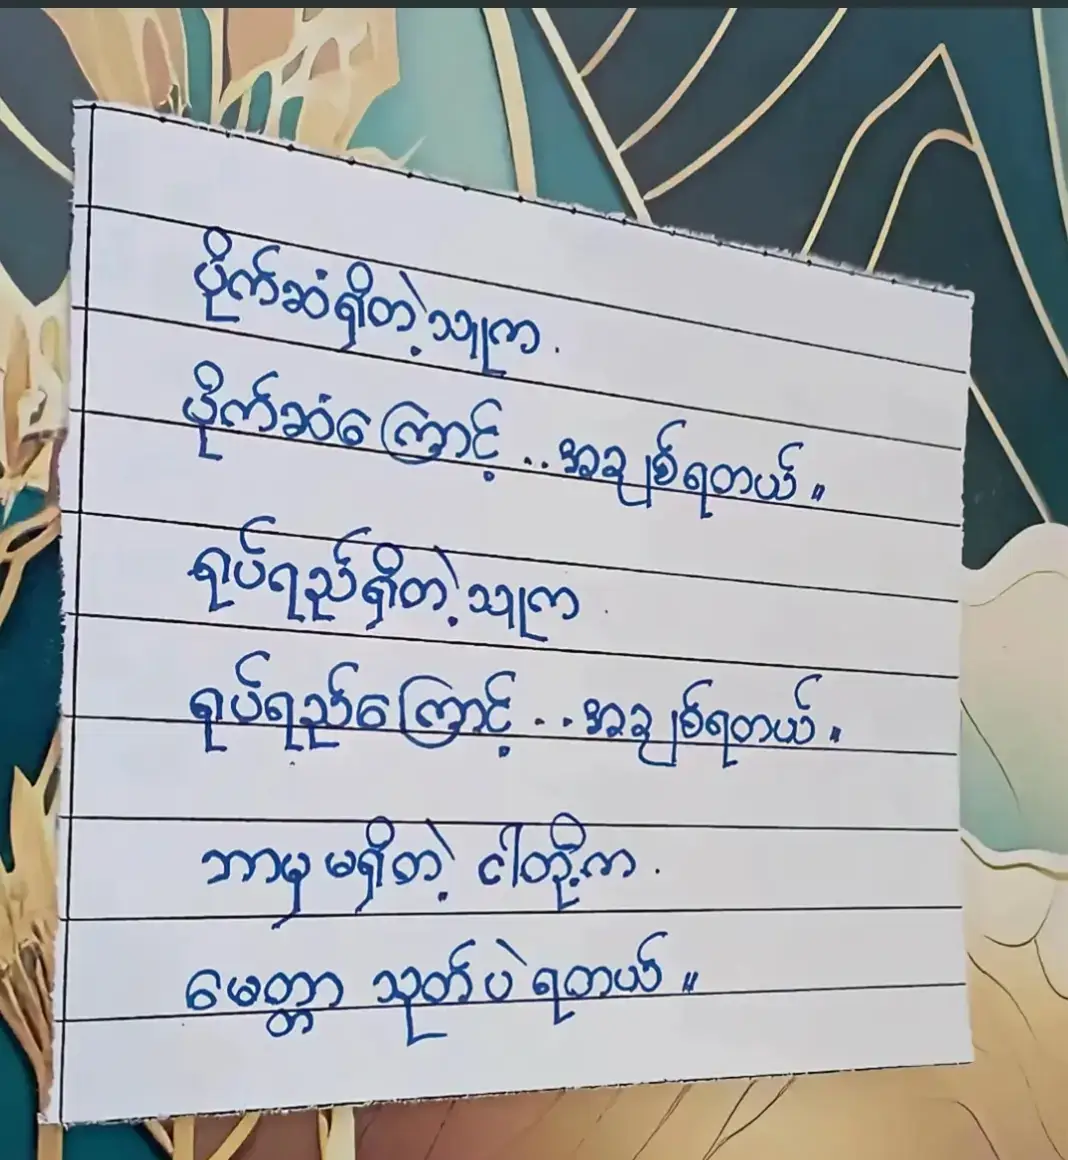 ပိုက်ဆံရှိတဲ့သူက .
ပိုက်ဆံကြောင့် .. အချစ်ရတယ် ။
ရုပ်ရည်ရှိတဲ့သူက .
ရုပ်ရည်ကြောင့် .. အချစ်ရတယ် ။
ဘာမှ မရှိတဲ့ ငါတို့က .
မေတ္တာ သုတ်ပဲ ရတယ် ။